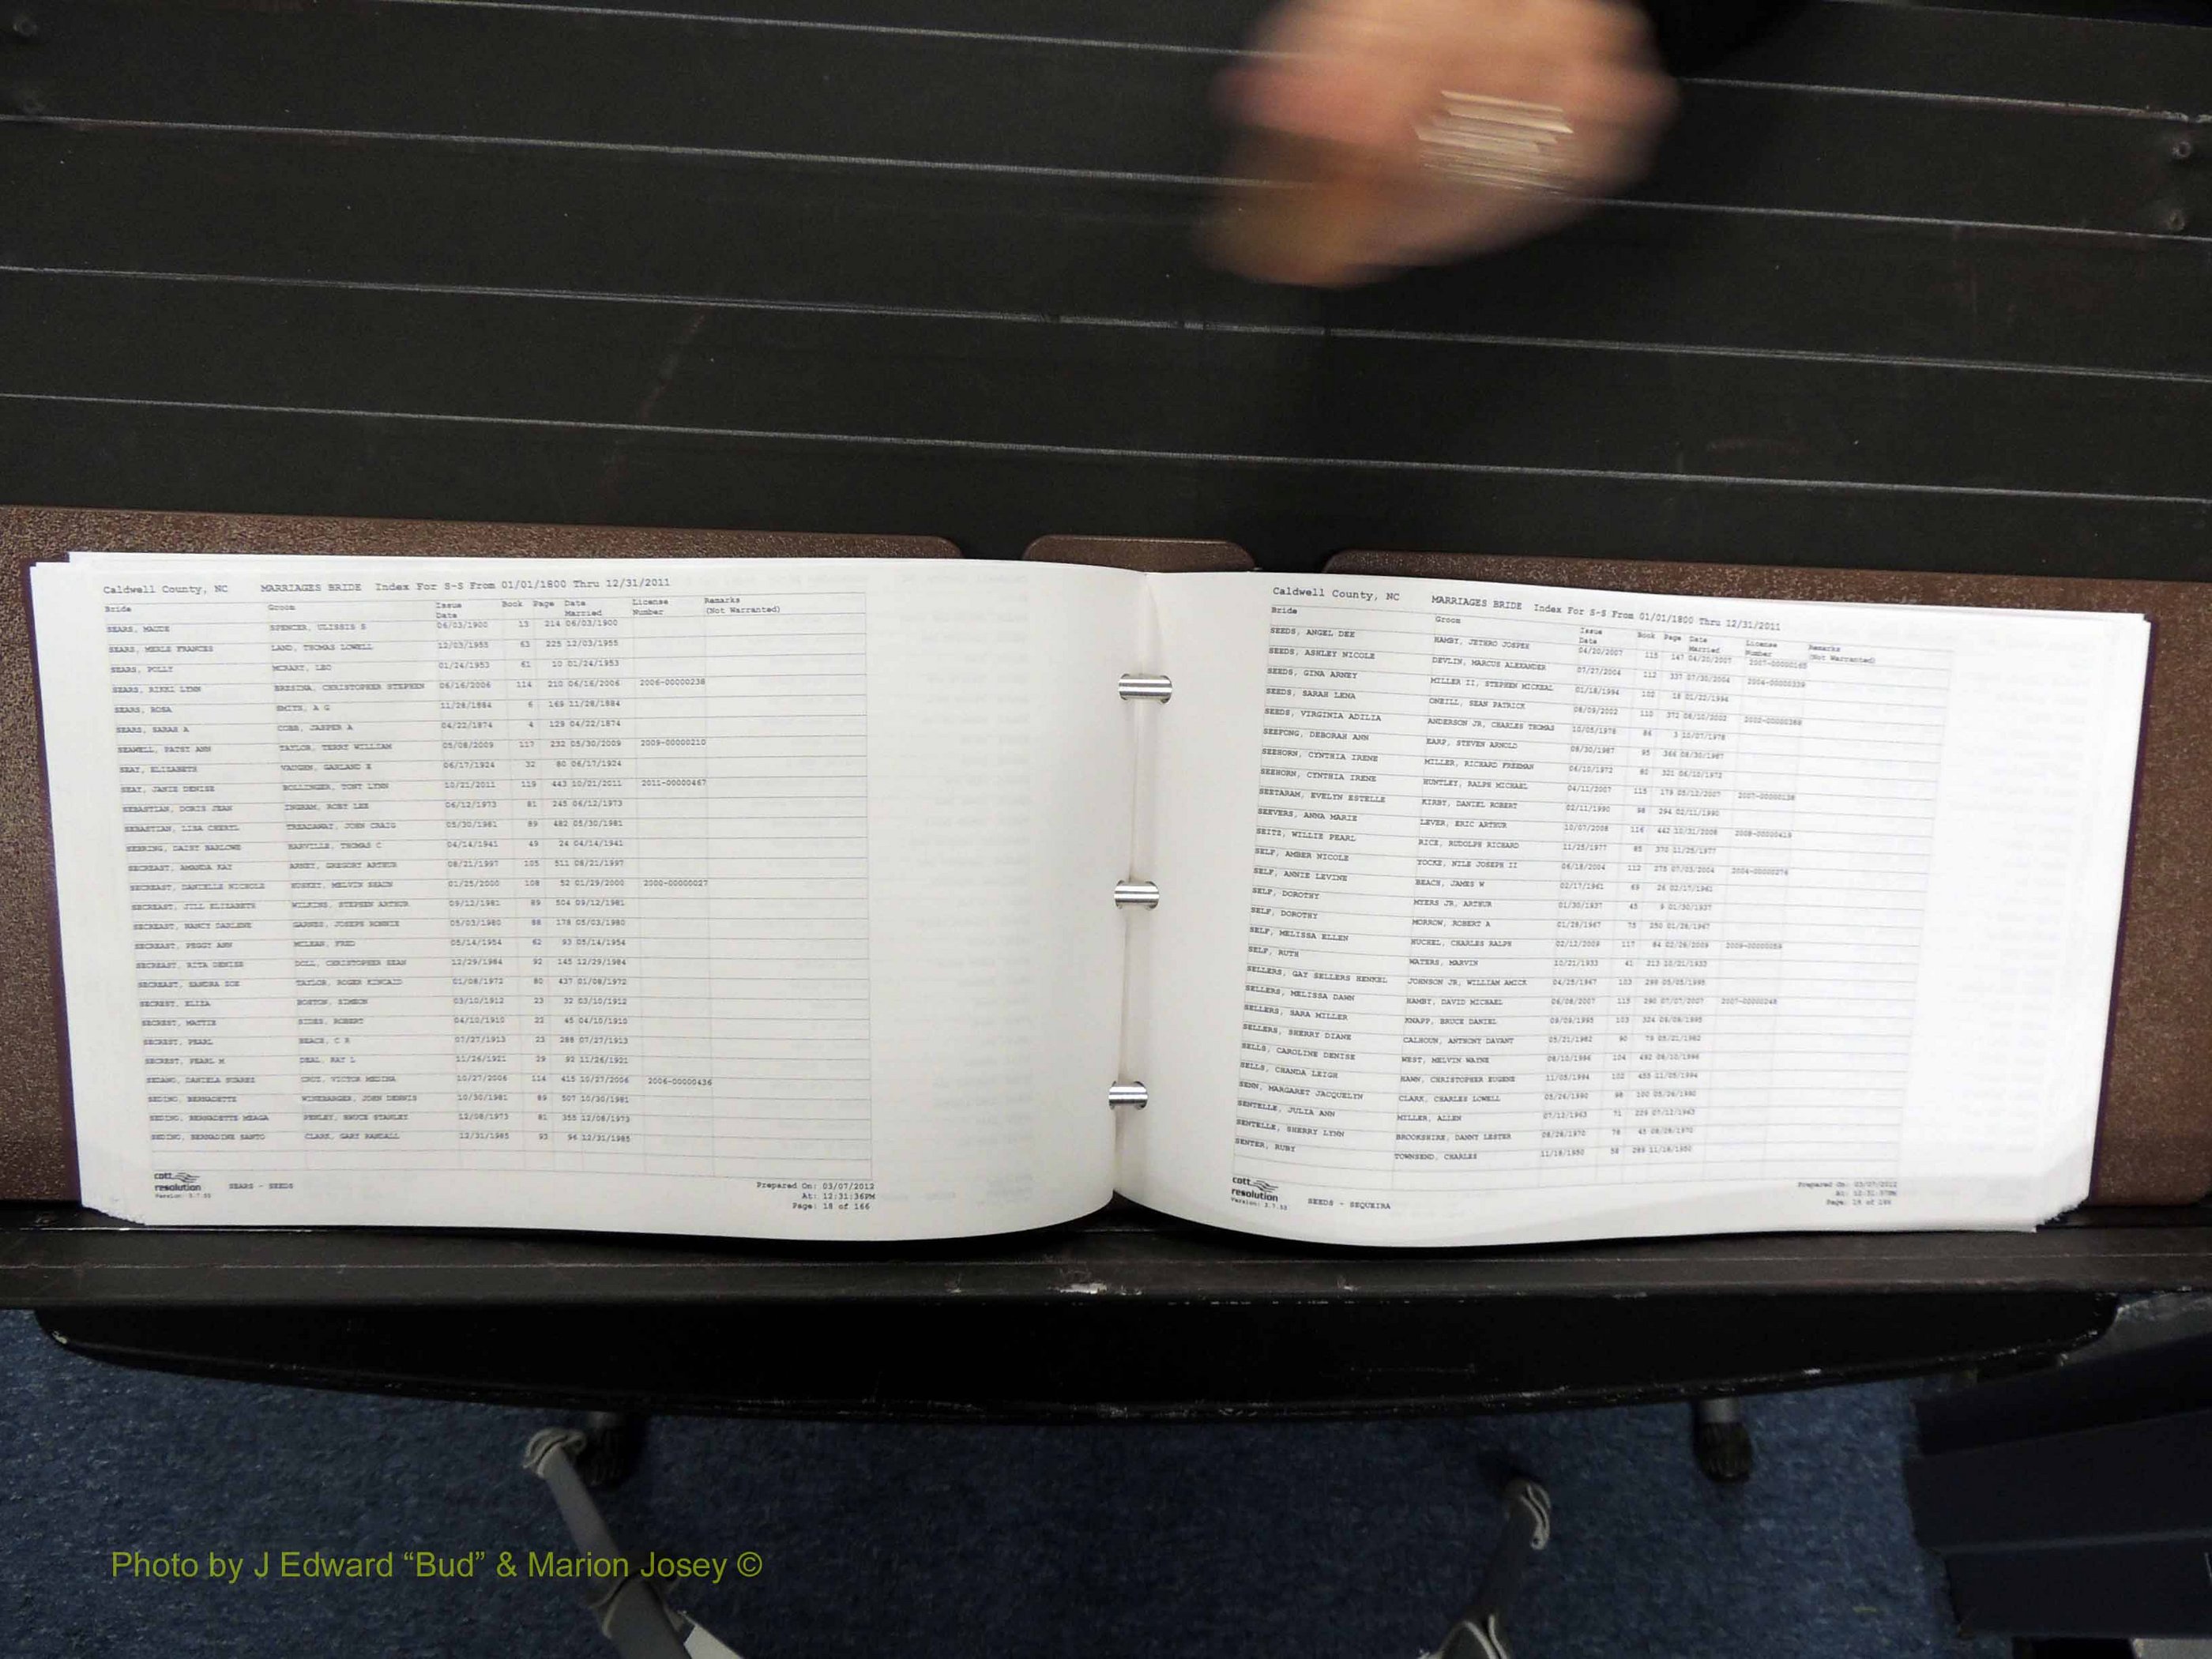 Caldwell County, NC MARRIAGES BRIDE Index For S-S From 01/01/1800 Thru 12/31/2011
Bride Groom Issue Date Book Page Date Married License Number Remarks (Not Warranted)
SEARS, MAUDE SPENCER, ULISSIS S 06/03/1900 13 214 06/03/1900
SEARS, MERLE FRANCES LAND, THOMAS LOWELL 12/03/1955 63 225 12/03/1955
SEARS, POLLY MCRARY, LEO 01/24/1953 61 10 01/24/1953
SEARS, RIKKI LYNN BRESINA, CHRISTOPHER STEPHEN 06/16/2006 114 210 06/16/2006 2006-00000238
SEARS, ROSA SMITH, A G 11/28/1884 6 169 11/28/1884
SEARS, SARAH A COBB, JASPER A 04/22/1874 4 129 04/22/1874
SEAWELL, PATSY ANN TAYLOR, TERRY WILLIAM 05/08/2009 117 232 05/30/2009 2009-00000210
SEAY, ELIZABETH VAUGHN, GARLAND 06/17/1924 32 80 06/17/1924
SEAY, JANIE DENISE BOLLINGER, TONY LYNN 10/21/2011 119 443 10/21/2011 2011-00000467
SEBASTIAN, DORIS JEAN INGRAM, ROBY LEE 06/12/1973 81 245 06/12/1973
SEBASTIAN, LISA CHERYL TREADAWAY, JOHN CRAIG 05/30/1981 89 482 05/30/1981
SEBRING, DAISY BARLOWE HARVILLE, THOMAS C 04/14/1941 49 24 04/14/1941
SECREAST, AMANDA KAY ARNEY, GREGORY ARTHUR 08/21/1997 105 511 08/21/1997
SECREAST, DANIELLE NICHOLE HUSKEY, MELVIN SHAUN 01/25/2000 108 52 01/29/2000 2000-00000027
SECREAST, JILL ELIZABETH WILKINS, STEPHEN ARTHUR 09/12/1981 89 504 09/12/1981
SECREAST, NANCY DARLENE GARNES, JOSEPH RONNIE 05/03/1980 88 178 05/03/1980
SECREAST, PEGGY ANN MCLEAN, FRED 05/14/1954 62 93 05/14/1954
SECREAST, RITA DENISE DOLL, CHRISTOPHER SEAN 12/29/1984 92 145 12/29/1984
SECREAST, SANDRA ZOE TAYLOR, ROGER KINCAID 01/08/1972 80 437 01/08/1972
SECREST, ELIZA BOSTON, SIMEON 03/10/1912 23 32 03/10/1912
SECREST, MATTIE SIDES, ROBERT 04/10/1910 22 45 04/10/1910
SECREST, PEARL BEACH, C R 07/27/1913 23 288 07/27/1913
SECREST, PEARL M DEAL, RAY L 11/26/1921 29 92 11/26/1921
SEDANO, DANIELA SUAREZ CRUZ, VICTOR MEDINA 10/27/2006 114 415 10/27/2006 2006-00000436
SEDINO, BERNADETTE WINEBARGER, JOHN DENNIS 10/30/1981 89 507 10/30/1981
SEDINO, BERNADETTE MEAGA PENLEY, BRUCE STANLEY 12/08/1973 81 355 12/08/1973
SEDINO, BERNADINE SANTO CLARK, GARY RANDALL 12/31/1985 93 96 12/31/1985
cott resolution Version: 3.7.53 SEARS - SEEDS
Prepared On: 03/07/2012
At: 12:31:36PM
Page: 18 of 166
Caldwell County, NC MARRIAGES BRIDE Index For S-S From 01/01/1800 Thru 12/31/2011
Bride Groom Issue Date Book Page Date Married License Number Remarks (Not Warranted)
SEEDS, ANGEL DEE HAMBY, JETHRO JOSPEH 04/20/2007 115 147 04/20/2007 2007-00000165
SEEDS, ASHLEY NICOLE DEVLIN, MARCUS ALEXANDER 07/27/2004 112 337 07/30/2004 2004-00000339
SEEDS, GINA ARNEY MILLER II, STEPHEN MICKEAL 01/18/1994 102 18 01/22/1994
SEEDS, SARAH LENA ONEILL, SEAN PATRICK 08/09/2002 110 372 08/10/2002
SEEDS, VIRGINIA ADILIA ANDERSON JR, CHARLES THOMAS 10/05/1978 86 3 10/27/1978
SEEFONG, DEBORAH ANN EARP, STEVEN ARNOLD 08/30/1987 95 366 08/30/1987
SEEHORN, CYNTHIA IRENE MILLER, RICHARD FREEMAN 06/10/1972 80 321 06/10/1972
SEEHORN, CYNTHIA IRENE HUNTLEY, RALPH MICHAEL 04/11/2007 115 179 05/12/2007 2007-00000138
SEETARAM, EVELYN ESTELLE KIRBY, DANIEL ROBERT 02/11/1990 98 294 02/11/1990
SEEVERS, ANNA MARIE LEVER, ERIC ARTHUR 10/07/2008 116 442 10/31/2008 2008-00000419
SEITZ, WILLIE PEARL RICE, RUDOLPH RICHARD 11/25/1977 85 370 11/25/1977
SELF, AMBER NICOLE YOCKE, NILE JOSEPH II 06/18/2004 112 275 07/03/2004 2004-00000276
SELF, ANNIE LEVINE BEACH, JAMES W 02/17/1961 69 26 02/17/1961
SELF, DOROTHY MYERS JR, ARTHUR 01/30/1937 45 01/30/1937
SELF, DOROTHY MORROW, ROBERT A 01/28/1967 75 250 01/28/1967
SELF, MELISSA ELLEN HUCKEL, CHARLES RALPH 02/12/2009 117 84 02/28/2009 2009-00000059
SELF, RUTH WATERS, MARVIN 10/21/1933 41 213 10/21/1933
SELLERS, GAY SELLERS HENKEL JOHNSON JR, WILLIAM AMICK 103 298 05/05/1995
SELLERS, MELISSA DAWN HAMBY, DAVID MICHAEL 06/08/2007 115 290 07/07/2007 2007-00000248
SELLERS, SARA MILLER KNAPP, BRUCE DANIEL 09/09/1995 103 324 09/09/1995
SELLERS, SHERRY DIANE CALHOUN, ANTHONY DAVANT 05/21/1982 90 79 05/21/1982
SELLS, CAROLINE DENISE WEST, MELVIN WAYNE 08/10/1996 104 492 08/10/1996
SELLS, CHANDA LEIGH HAWN, CHRISTOPHER EUGENE 11/05/1994 102 455 11/05/1994
SENN, MARGARET JACQUELYN CLARK, CHARLES LOWELL 05/26/1990 98 100 05/26/1990
SENTELLE, JULIA ANN MILLER, ALLEN 07/12/1963 71 229 07/12/1963
SENTELLE, SHERRY LYNN BROOKSHIRE, DANNY LESTER 08/28/1970 78 45 08/28/1970
SENTER, RUBY TOWNSEND, CHARLES 11/18/1950 58 289 11/18/1950
cott resolution Version: 3.7.53 SEEDS - SEQUEIRA
Prepared On: 03/07/2012
At: 12:31:37PM
Page: 19 of 166
Photo by J Edward “Bud” & Marion Josey ©